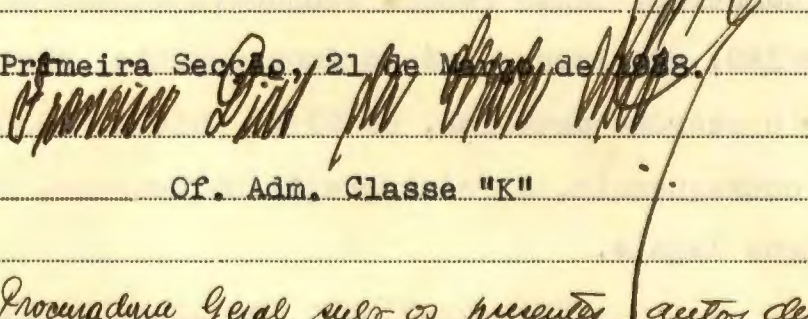 Primeira Secção, 21 de Março de 1938.
Francisco Dias da
Of. Adm. Classe "K"
Procuradoria Geral sub os presentes autos de